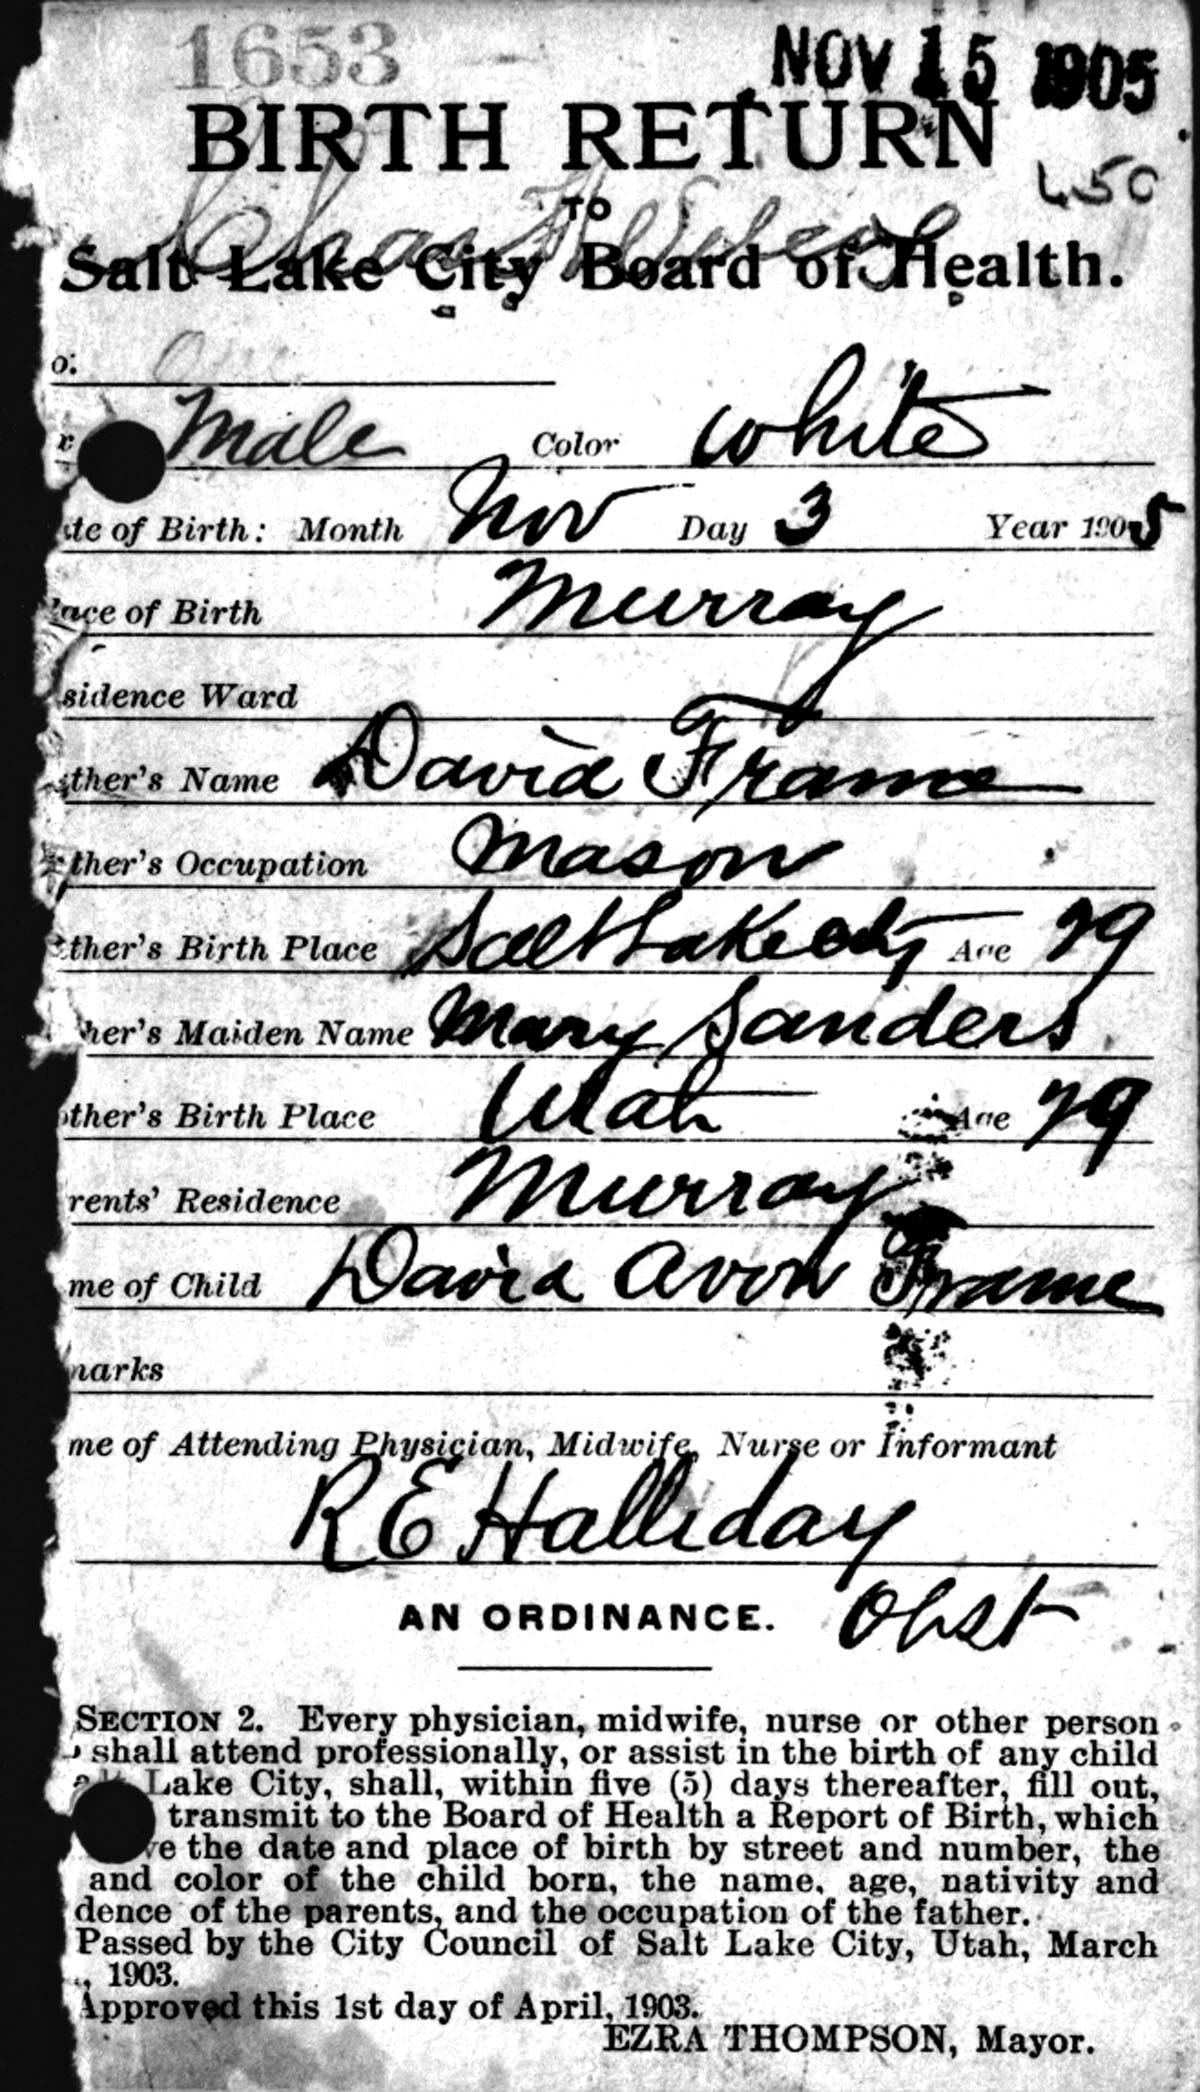 1653 NOV 15 1905
BIRTH RETURN
450
TO
Salt Lake City Board of Health.
o:
Male Color White
te of Birth: Month Nov Day 3 Year 1905
lace of Birth Murray
sidence Ward
ther's Name David Frame
ther's Occupation Mason
ther's Birth Place Salt Lake city Age 29
her's Maiden Name Mary Sanders
other's Birth Place Utah Age 29
rents' Residence Murray
me of Child David Avon Frame
marks
me of Attending Physician, Midwife, Nurse or Informant
R E Halliday
AN ORDINANCE. Obst
SECTION 2. Every physician, midwife, nurse or other person
shall attend professionally, or assist in the birth of any child
Lake City, shall, within five (5) days thereafter, fill out,
transmit to the Board of Health a Report of Birth, which
ve the date and place of birth by street and number, the
and color of the child born, the name, age, nativity and
dence of the parents, and the occupation of the father.
Passed by the City Council of Salt Lake City, Utah, March
, 1903.
Approved this 1st day of April, 1903.
EZRA THOMPSON, Mayor.